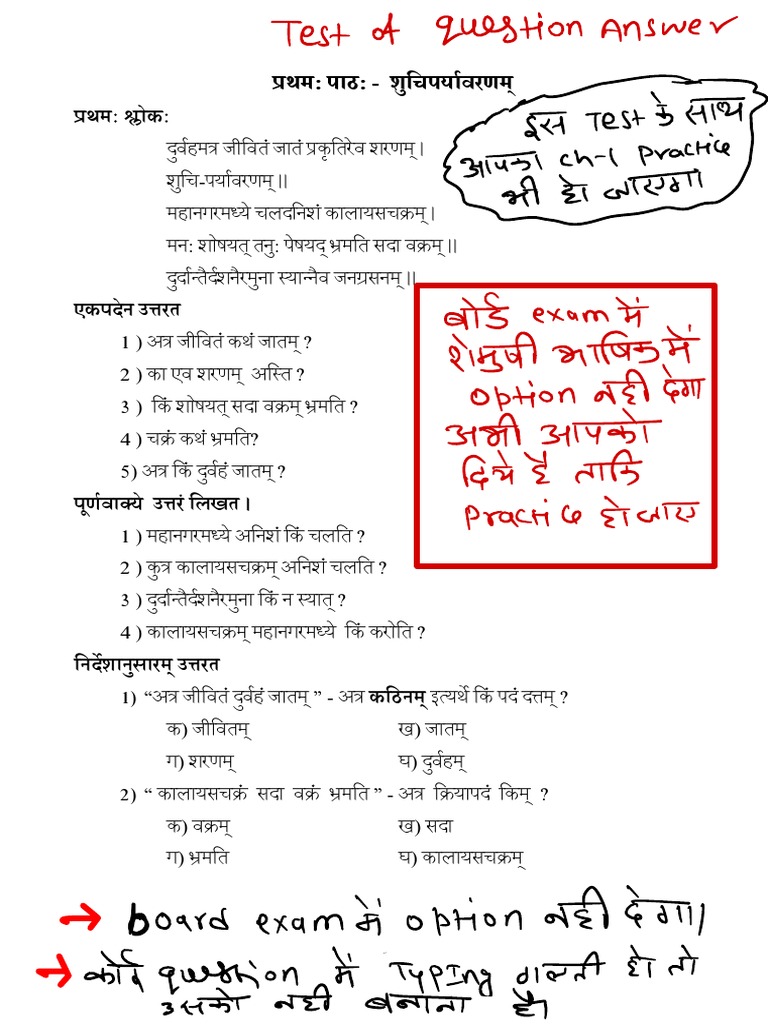 Test of question Answer
प्रथमः पाठः - शुचिपर्यावरणम्
इस Test के साथ
आपका ch-1 Practice
भी हो जाएगा
प्रथमः श्लोकः
दुर्वहमत्र जीवितं जातं प्रकृतिरेव शरणम् ।
शुचि-पर्यावरणम् ॥
महानगरमध्ये चलदनिशं कालायसचक्रम् ।
मनः शोषयत् तनुः पेषयद् भ्रमति सदा वक्रम् ॥
दुर्दान्तैर्दशनैरमुना स्यान्नैव जनग्रसनम् ॥
एकपदेन उत्तरत
1 ) अत्र जीवितं कथं जातम् ?
2 ) का एव शरणम् अस्ति ?
3 ) किं शोषयत् सदा वक्रम् भ्रमति ?
4 ) चक्रं कथं भ्रमति?
5) अत्र किं दुर्वहं जातम् ?
बोर्ड exam में
शेमुषी भाषिक में
option नही देगा
अभी आपको
दिये है ताकि
Practice हो जाए
पूर्णवाक्ये उत्तरं लिखत ।
1 ) महानगरमध्ये अनिशं किं चलति ?
2 ) कुत्र कालायसचक्रम् अनिशं चलति ?
3 ) दुर्दान्तैर्दशनैरमुना किं न स्यात् ?
4 ) कालायसचक्रम् महानगरमध्ये किं करोति ?
निर्देशानुसारम् उत्तरत
1) “अत्र जीवितं दुर्वहं जातम् ” - अत्र कठिनम् इत्यर्थे किं पदं दत्तम् ?
क) जीवितम् ख) जातम्
ग) शरणम् घ) दुर्वहम्
2) “ कालायसचक्रं सदा वक्रं भ्रमति ” - अत्र क्रियापदं किम् ?
क) वक्रम् ख) सदा
ग) भ्रमति घ) कालायसचक्रम्
→ board exam में option नही देगा।
→ कोई question में Typing गलती हो तो
उसको नही बनाना है।